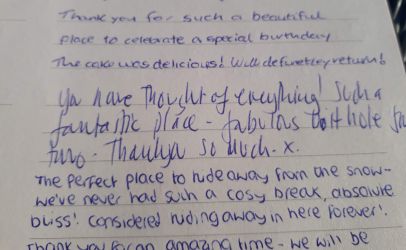 Thank you for such a beautiful
place to celebrate a special birthday
The cake was delicious! Will definetley return!
You have thought of everything! Such a
fantastic place - fabulous bolt hole for
two. Thankyou so much. x.
The perfect place to hide away from the snow-
we've never had such a cosy break, absolute
bliss! considered hiding away in here forever!
Thank you for an amazing time - we will be